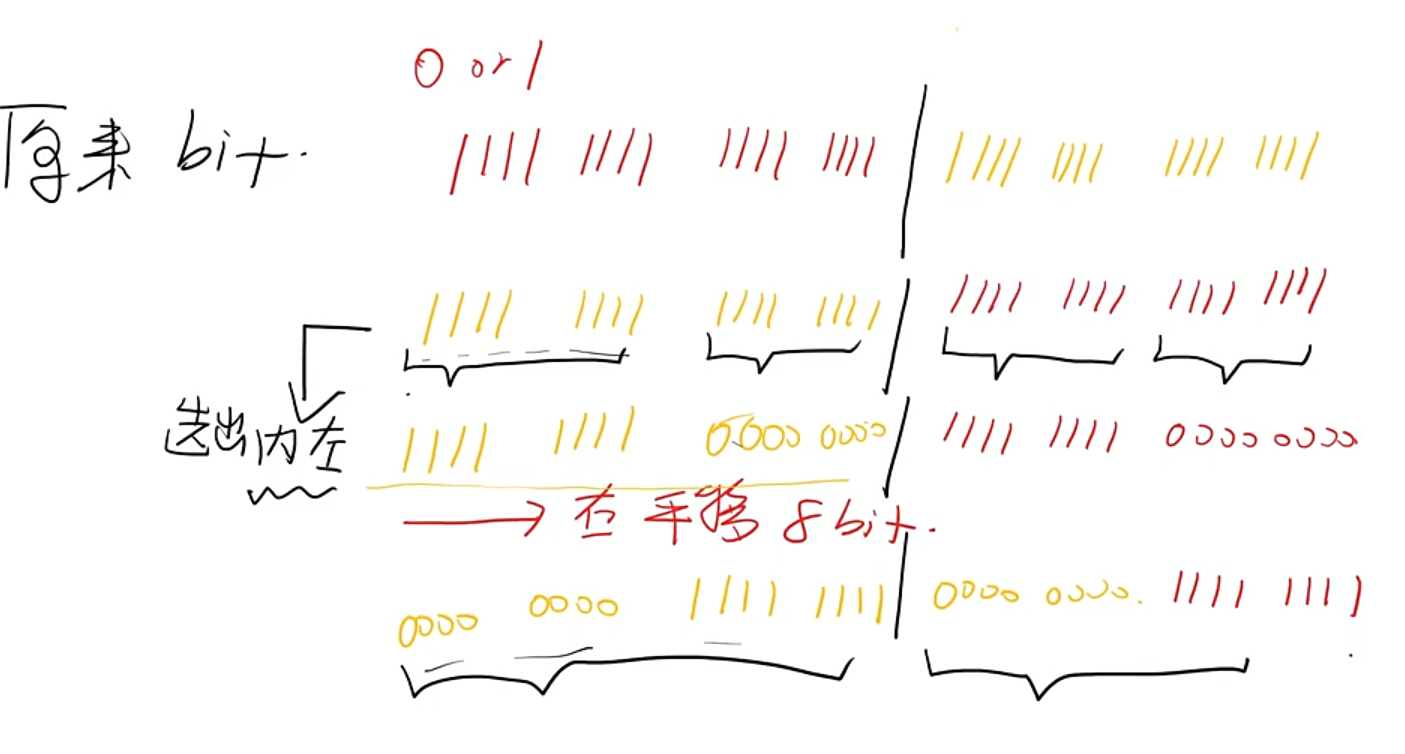 0 or 1
原来 bit. 1111 1111 1111 1111 | 1111 1111 1111 1111
1111 1111 1111 1111 | 1111 1111 1111 1111
选出内左 1111 1111 0000 0000 | 1111 1111 0000 0000
→ 右平移 8 bit.
0000 0000 1111 1111 | 0000 0000. 1111 1111